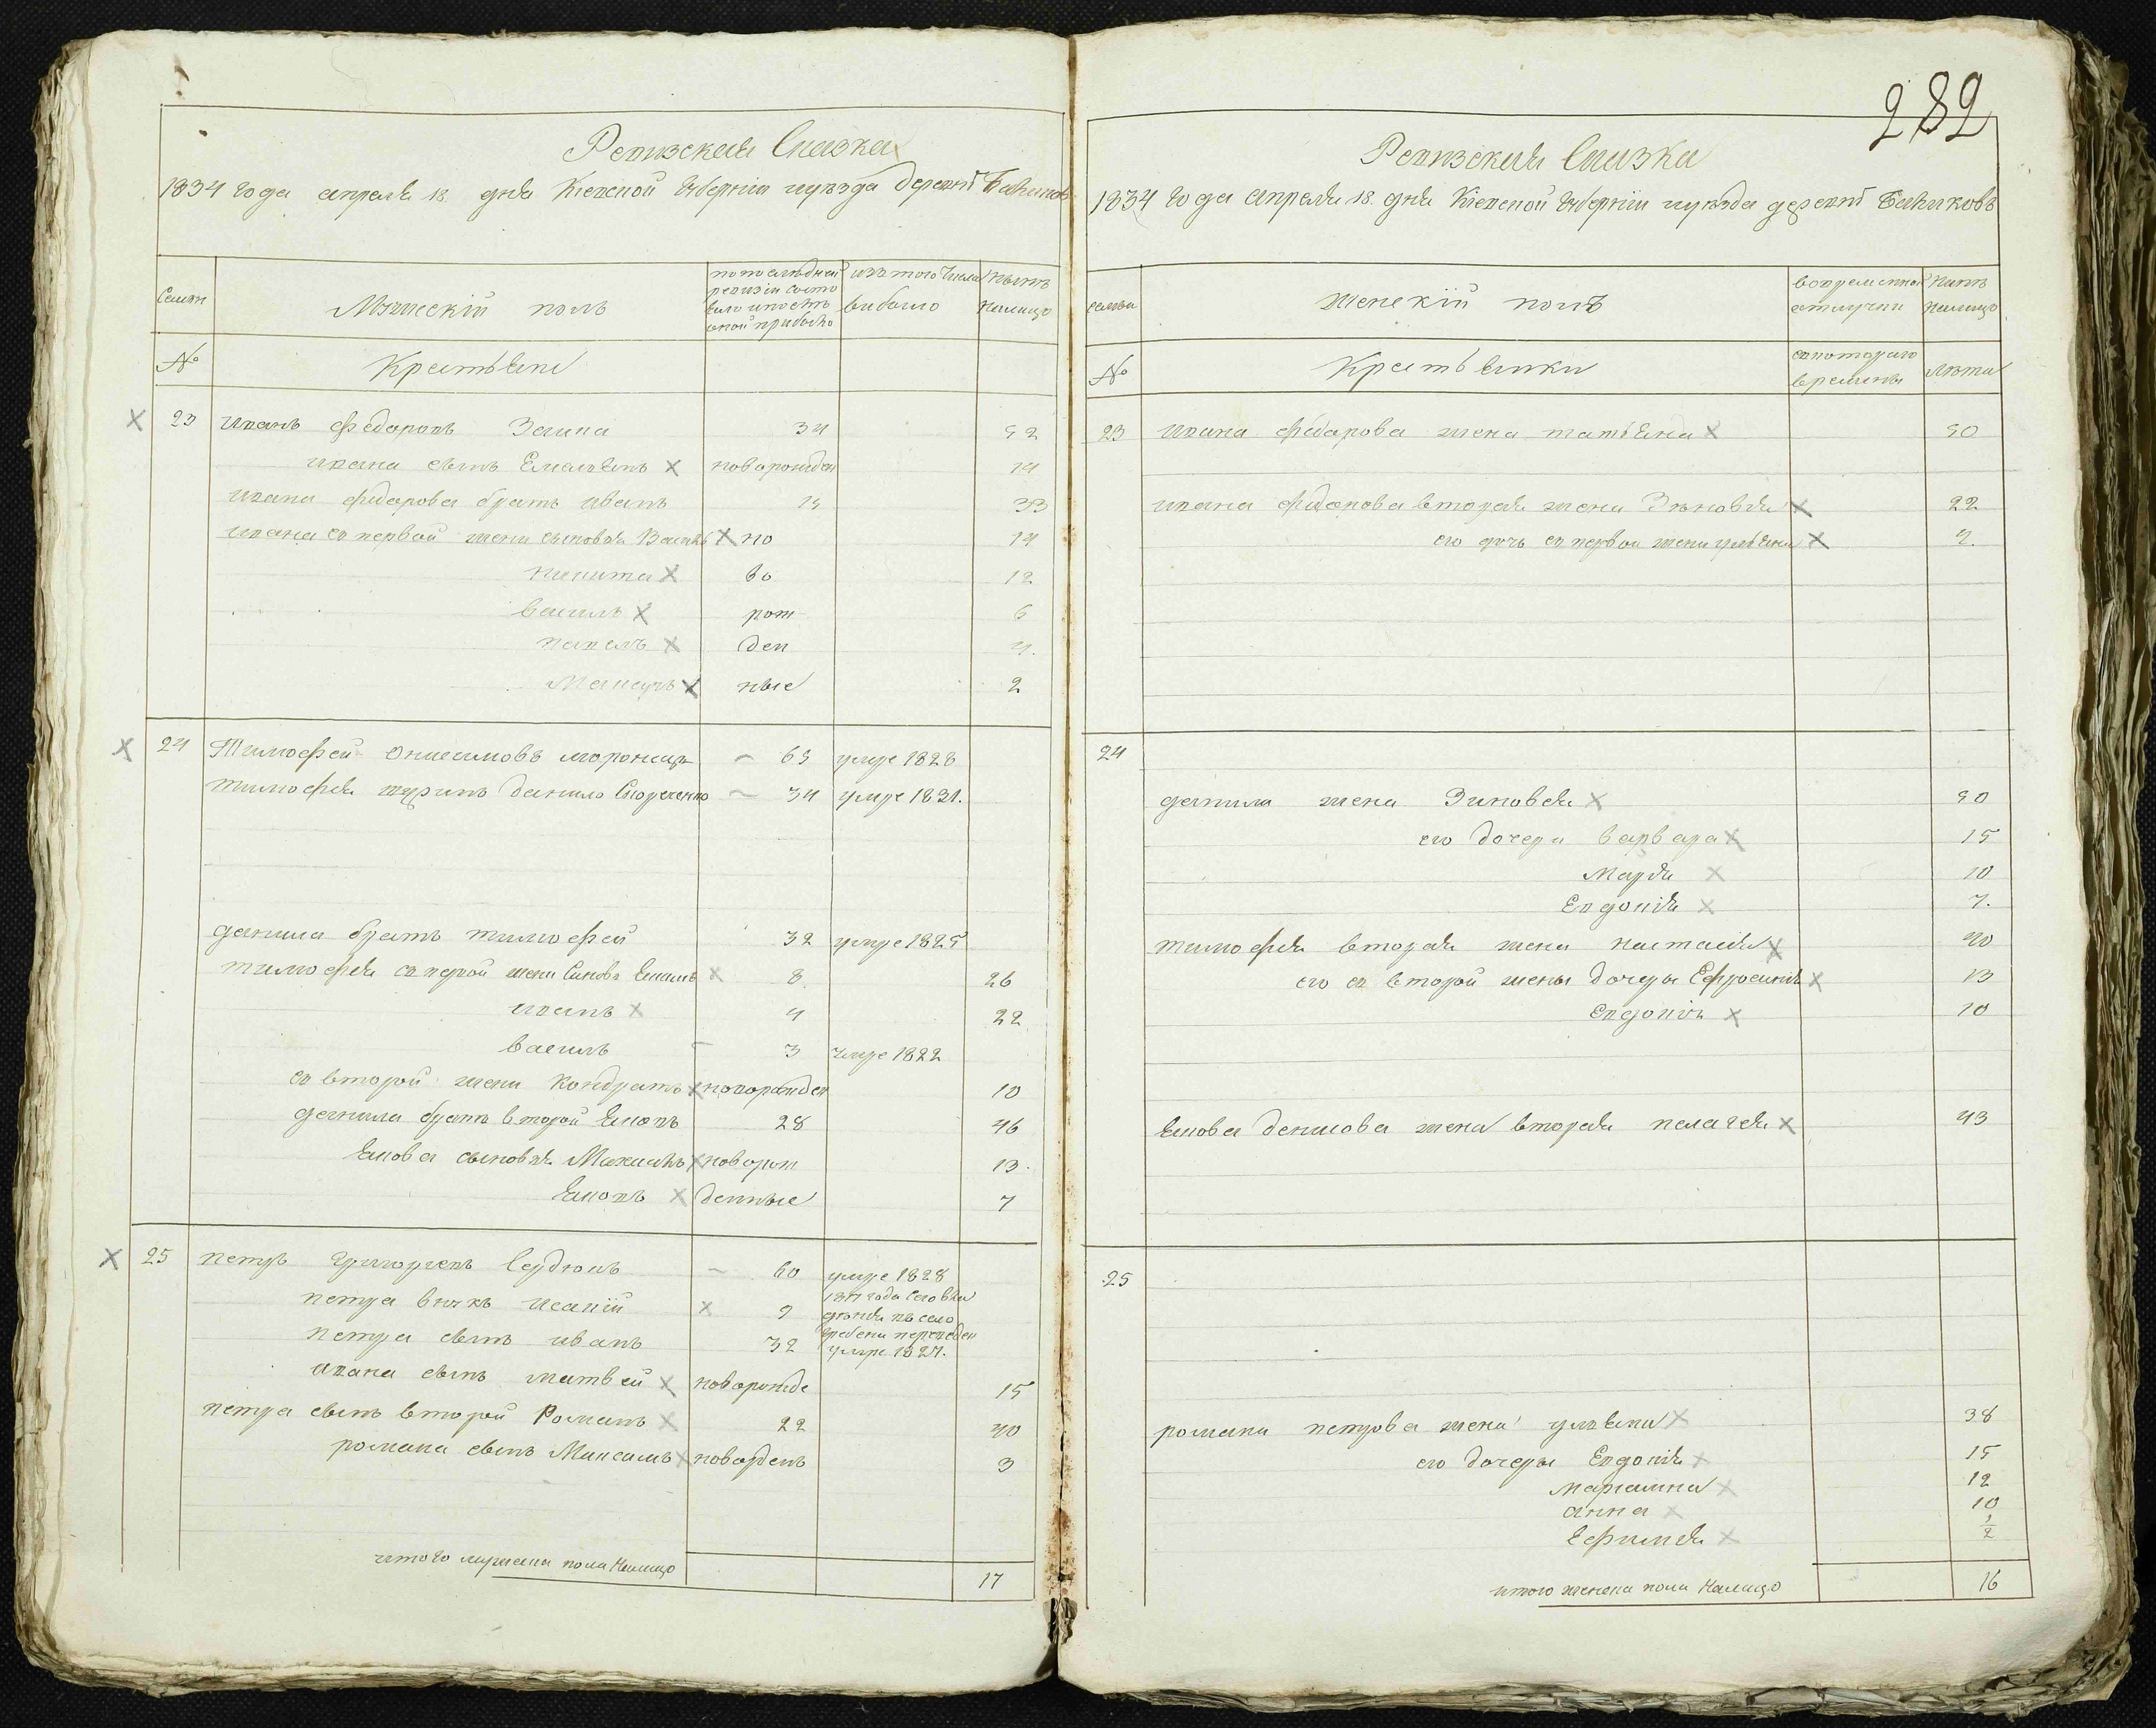 282
Ревизская Сказка
1834 года апреля 18. дня Киевской Губернии и уезда деревни
Семьи
Мужеский полъ
по последней ревизии состояло и после оной прибыло
изъ того числа выбыло
ныне налицо
№
Крестьяне
23 Иванъ Федоровъ 34 52
Ивана сынъ Емельянъ новорожден 14
Ивана Федорова братъ Иванъ 15 33
Ивана съ первой жены сыновья но 14
Никита во 12
Василь рож 6
Павелъ ден 4.
ные 2
24 Тимофей Онисимовъ 65 умре 1828
Тимофея Данило 34 умре 1831.
Данила братъ Тимофей 32 умре 1825
Тимофея съ первой жени 8. 26
Иванъ 4 22
Василь 3 умре 1822
съ второй жени Кондратъ новорожден 10
Данила братъ второй Яковъ 28 46
Якова сыновья новорож 13.
Яковъ денные 7
25 Петръ Григориевъ Сердюкъ 60 умре 1828
Петра внукъ Исакий 9 года въ село переведен
Петра сынъ Иванъ 32 умре 1827.
Ивана сынъ Матвей новорожде 15
Петра сынъ второй Романъ 22 40
Романа сынъ Максимъ 3
итого мужеска пола налицо 17
Ревизская Сказка
1834 года апреля 18. дня Киевской Губернии и уезда деревни
семьи
женский полъ
во временной отлучки
ныне налицо
№
Крестьянки
съ котораго времены
лета
23 Ивана Федорова жена Татьяна 50
Ивана Федорова вторая жена Зеновия 22
его дочь съ первой жени Ульяна 9.
24
Данила жена Зиновея 50
его дочери Варвара 15
Марья 10
Евдокия 7.
Тимофея вторая жена Настасия 40
его съ второй жены дочеры Ефросиния 13
Евдокия 10
Якова Денисова жена вторая Пелагея 43
25
Романа Петрова жена Ульяна 38
его дочеры Евдокия 15
Мариамна 12
Анна 10
Ефимия 1/2
итого женска пола налицо 16